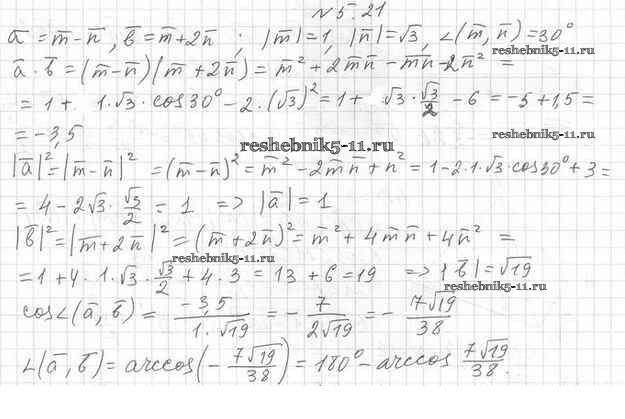 N 5.21
a̅ = m̅ - n̅, b̅ = m̅ + 2n̅ ; |m̅| = 1, |n̅| = √3, ∠(m̅, n̅) = 30°
reshebnik5-11.ru
a̅ · b̅ = (m̅ - n̅)(m̅ + 2n̅) = m̅² + 2m̅n̅ - m̅n̅ - 2n̅² =
= 1 + 1·√3·cos30° - 2·(√3)² = 1 + √3·√3/2 - 6 = -5 + 1,5 =
reshebnik5-11.ru
= -3,5
reshebnik5-11.ru
|a̅|² = |m̅ - n̅|² = (m̅ - n̅)² = m̅² - 2m̅n̅ + n̅² = 1 - 2·1·√3·cos30° + 3 =
= 4 - 2√3·√3/2 = 1 => |a̅| = 1
|b̅|² = |m̅ + 2n̅|² = (m̅ + 2n̅)² = m̅² + 4m̅n̅ + 4n̅² =
reshebnik5-11.ru
= 1 + 4·1·√3·√3/2 + 4·3 = 13 + 6 = 19 => |b̅| = √19
reshebnik5-11.ru
cos∠(a̅, b̅) = -3,5/(1·√19) = -7/(2√19) = -7√19/38
∠(a̅, b̅) = arccos(-7√19/38) = 180° - arccos 7√19/38.